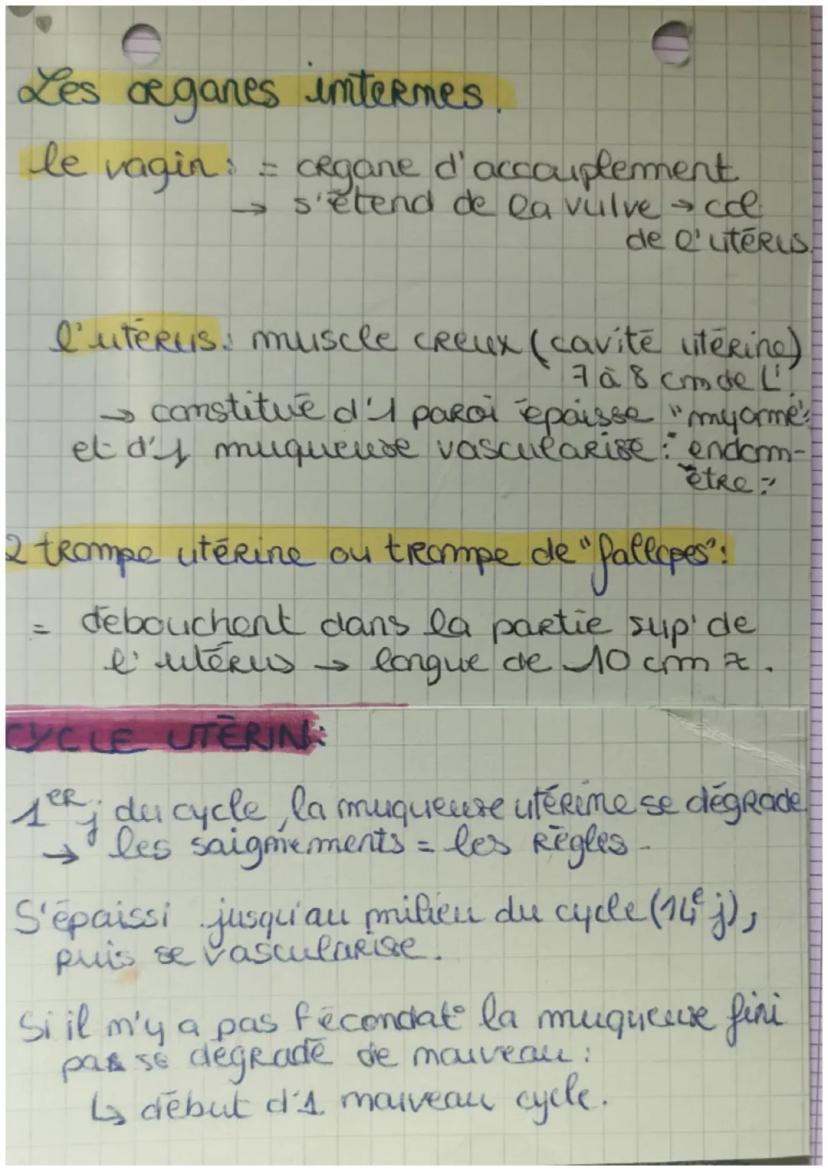 Les organes internes.
le vagin : = organe d'accouplement
→ s'étend de la vulve → col
de l'utérus.
l'utérus : muscle creux (cavité utérine)
7 à 8 cm de L.
→ constitué d'1 paroi épaisse "myomé"
et d'1 muqueuse vascularisé : "endom-
être".
2 trompe utérine ou trompe de "fallopes" :
= debouchent dans la partie sup' de
l'utérus → longue de 10 cm ≈.
CYCLE UTÉRIN :
1er j du cycle, la muqueuse utérine se dégrade
→ les saignements = les Règles.
S'épaissi jusqu'au milieu du cycle (14e j),
puis se vascularise.
Si il n'y a pas fécondat° la muqueuse fini
par se dégradé de nouveau :
↳ début d'1 nouveau cycle.